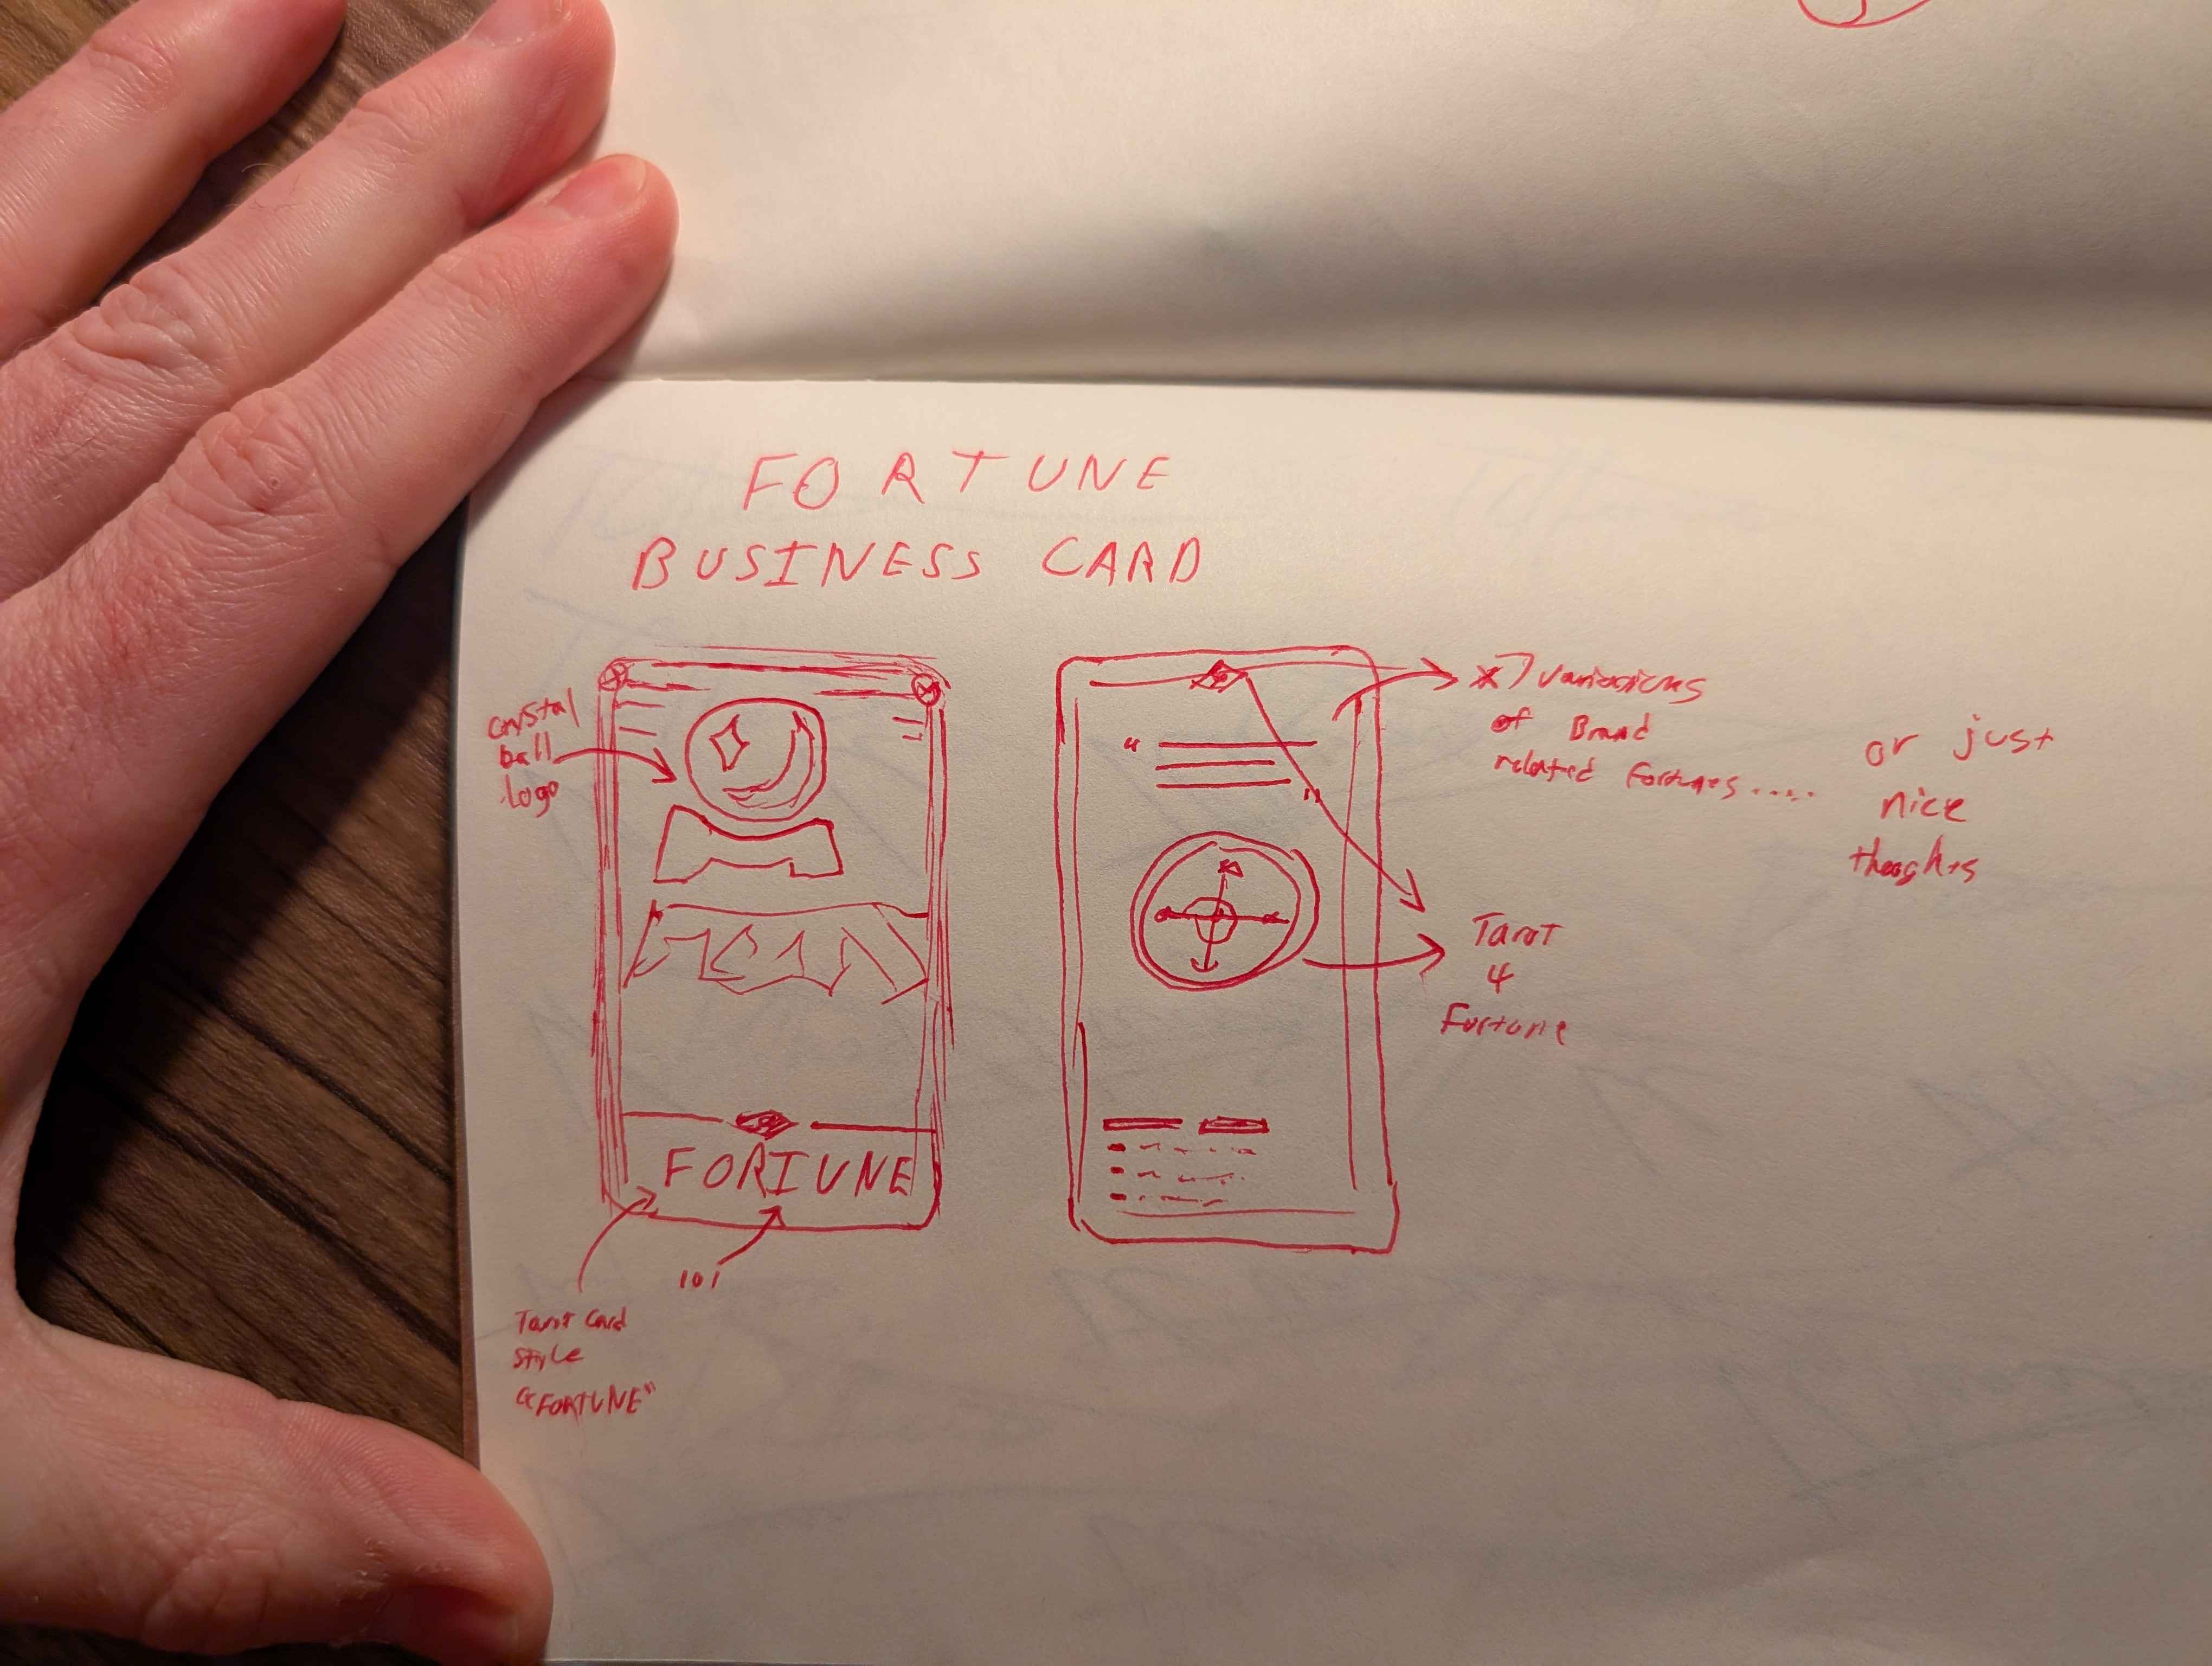 FORTUNE
BUSINESS CARD
crystal
ball
logo
FORTUNE
101
Tarot Card
style
"FORTUNE"
x7 variations
of Brand
related fortunes.....
or just
nice
thoughts
Tarot
4
Fortune